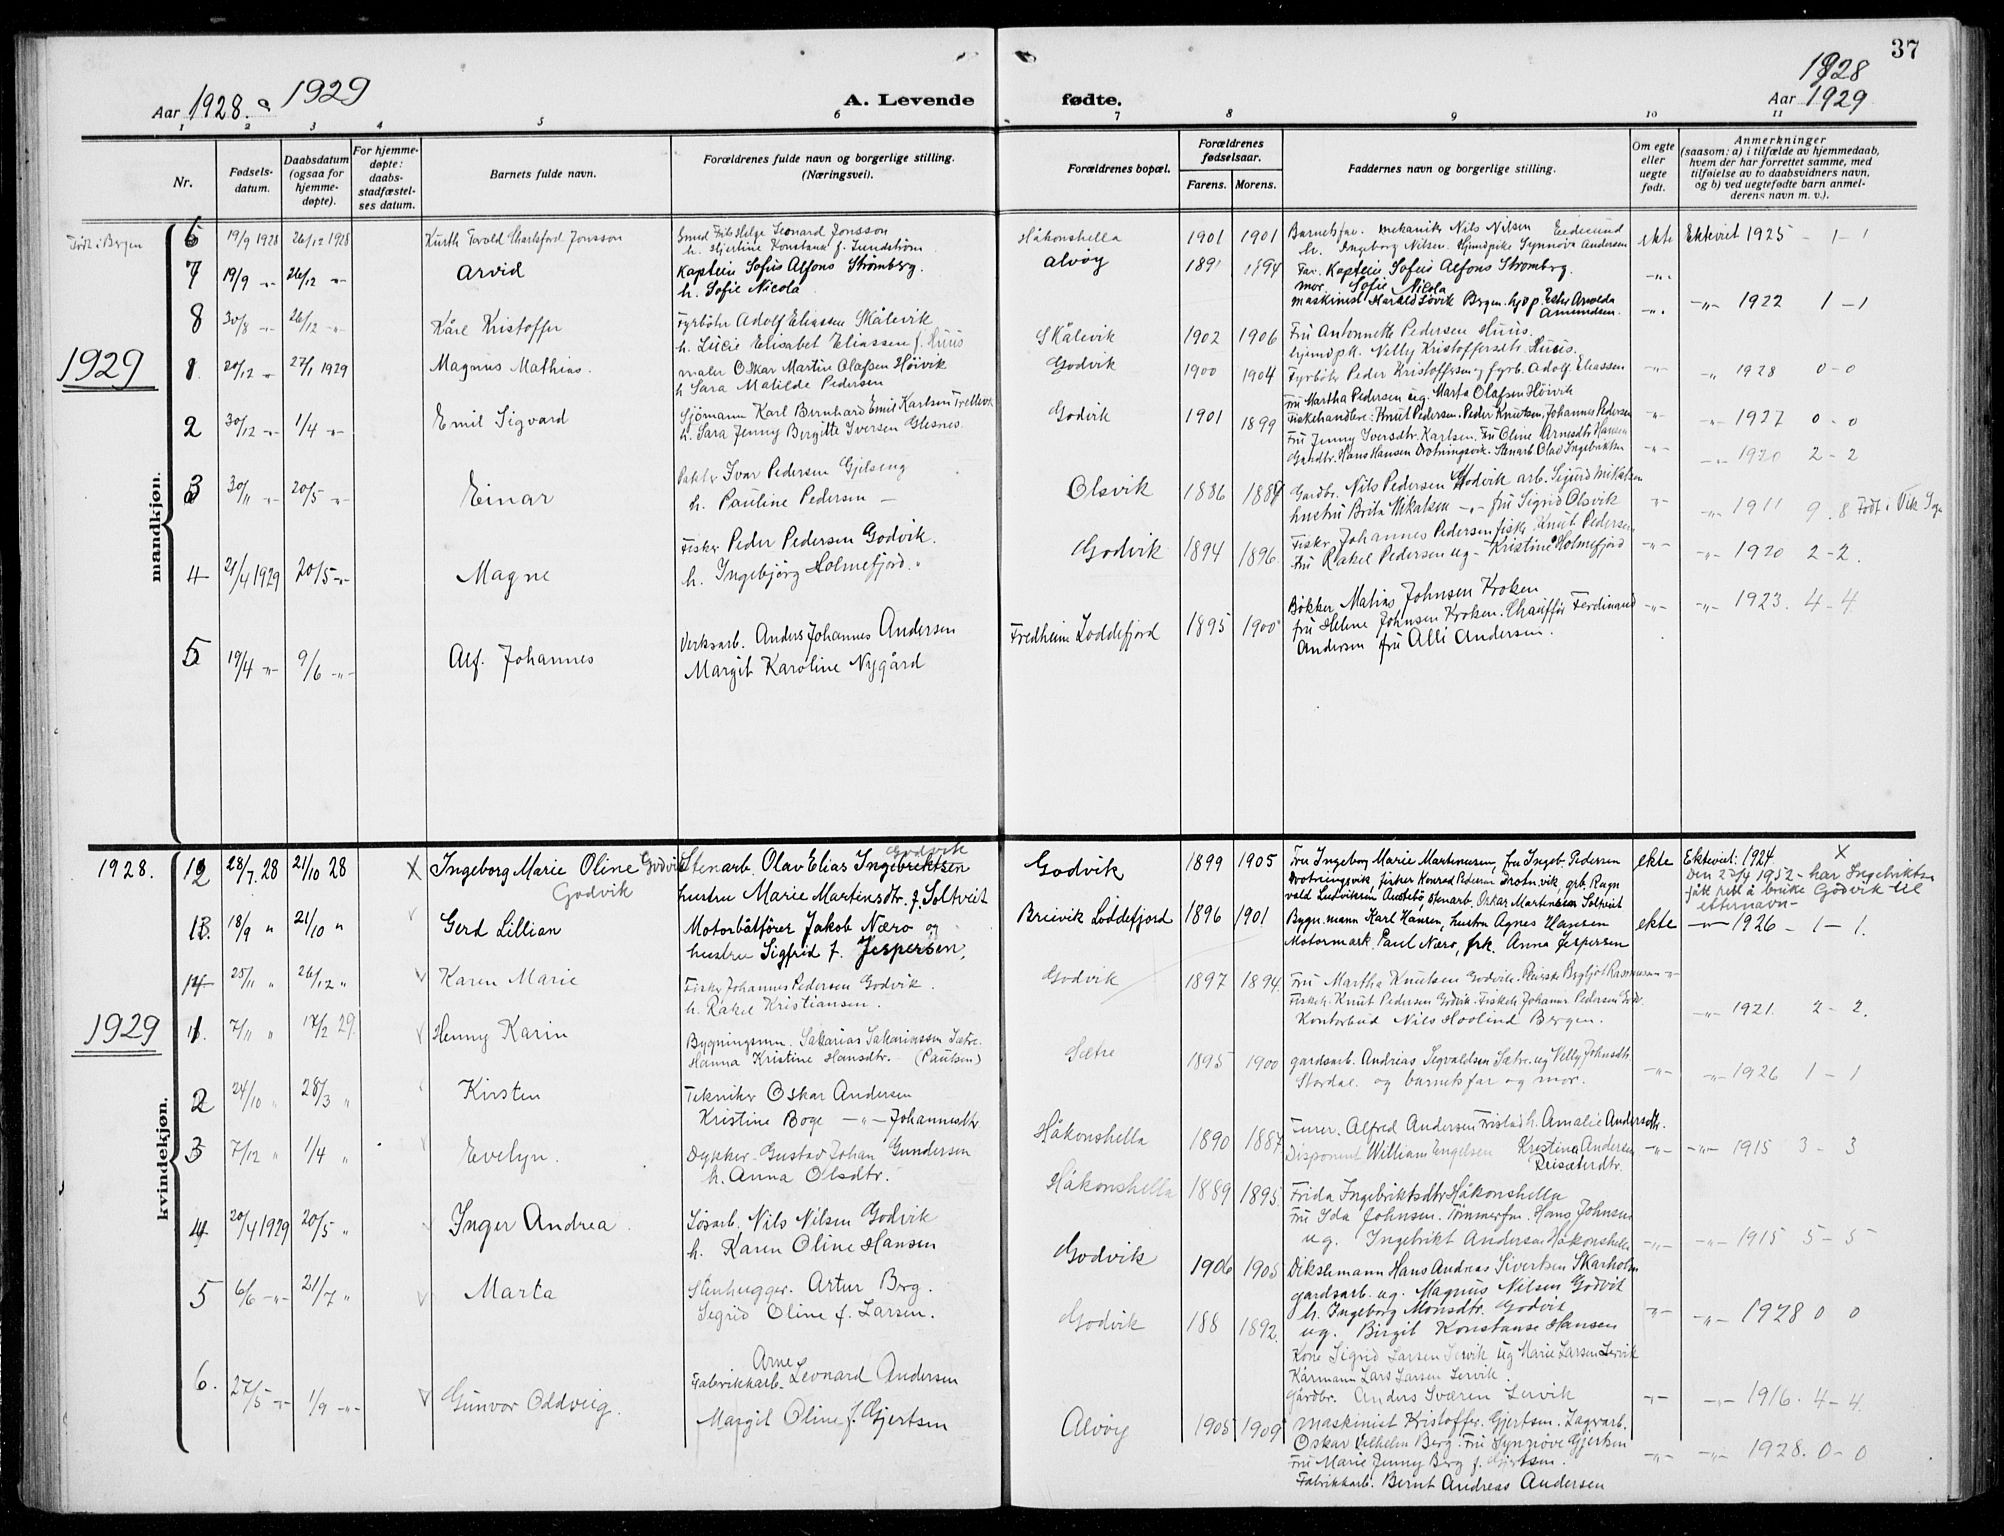 37
Aar 1928. & 1929
A. Levende fødte.
1928
Aar 1929
1 2 3 4 5 6 7 8 9 10 11
Nr.
Fødsels-
datum.
Daabsdatum
(ogsaa for
hjemme-
døpte).
For hjemme-
døpte:
daabs-
stadfæstel-
ses datum.
Barnets fulde navn.
Forældrenes fulde navn og borgerlige stilling.
(Næringsvei).
Forældrenes bopæl.
Forældrenes
fødselsaar.
Farens. Morens.
Faddernes navn og borgerlige stilling.
Om egte
eller
uegte
født.
Anmerkninger
(saasom: a) i tilfælde av hjemmedaab,
hvem der har forrettet samme, med
tilføielse av to daabsvidners navn,
og b) ved uegtefødte barn anmel-
derens navn m. v.).
mandkjøn.
Født i Bergen
6 19/9 1928 26/12 1928 Kurth Torold Charlsford Jonsson
Smed Frits Helge Leonard Jonsson
h. Hjertine Konstanse f. Lundstrøm
Håkonshella 1901 1901
Barnets far. mekanik Nils Nilsen
h. Ingeborg Nilsen. Synnøva Andersen
ekte Ekteviet 1925 - 1 - 1
7 19/9 -"- 26/12 -"- Arvid
Kaptein Sofus Alfons Strømberg.
h. Sofie Nicola
Alvøy 1891 1894
Far. Kaptein Sofus Alfons Strømberg.
mor. Sofie Nicola
maskinist Bergen. Ester Arvolda
Amundsen.
-"- -"- 1922 1 - 1
8 30/8 -"- 26/12 -"- Kåre Kristoffer
Fyrbøter Adolf Eliassen Skålevik
h. Lucie Elisabet Eliassen f. Huus
Skålevik 1902 1906
Fru Antonnette Pedersen Huus.
Nelly Kristoffersdtr. Huus.
-"- -"- 1928 0 - 0
1929
1 20/12 -"- 27/1 1929 Magnus Mathias.
maler Oskar Martin Olafsen Höivik
h. Sara Matilde Pedersen
Godvik 1900 1904
Fyrböter Peder Kristoffersen og fyrb. Adolf Eliassen
Fru Martha Pedersen ug. Marta Olafsen Höivik
-"- -"- 1927 0 - 0
2 30/12 -"- 1/4 -"- Emil Sigvard
Sjömann Karl Bernhard Emil Karlsen Trellevik
h. Sara Jenny Bergitte Iversen Glesnes.
Godvik 1901 1899
Fiskehandlere: Knut Pedersen. Peder Knutsen, Johannes Pedersen
Fru Jenny Iversdtr. Karlsen. Fru Oline Arnesdtr. Hansen
Gardbr. Hans Hansen Drotningsvik. Stenarb Olav Ingebriktsen
-"- -"- 1920 2 - 2
3 30/11 -"- 20/5 -"- Einar
Ivar Pedersen Gjelseng
h. Pauline Pedersen -
Olsvik 1886 1887
Gardbr. Nils Pedersen Godvik arb. Sigurd Mikalsen
hustru Brita Mikalsen -"- fru Sigrid Olsvik
-"- -"- 1911 9. 8 Født i Vik Sogn
4 21/4 1929 20/5 -"- Magne
Fisker Peder Pedersen Godvik.
h. Ingebjörg Holmefjord.
Godvik 1894 1896
Fisker Johannes Pedersen fisk. Knut Pedersen
fru Rakel Pedersen ug - Kristine Holmefjord
-"- -"- 1920 2 - 2.
5 19/4 -"- 9/6 -"- Alf. Johannes
Verksarb. Anders Johannes Andersen
Margit Karoline Nygård
Fredheim Loddefjord 1895 1900
Bökker Matias Johnsen Kroken
fru Helene Johnsen Kroken. Chauffør Ferdinand
Andersen fru Alli Andersen.
-"- -"- 1923. 4 - 4
kvindekjøn.
1928.
12 28/7. 28 21/10 28 X Ingeborg Marie Oline Godvik
Godvik
Stenarb. Olav Elias Ingebriktsen
Godvik
hustru Marie Martinsdtr. f. Soltveit
Godvik 1899 1905
Fru Ingeborg Marie Martinusen, fru Ingeb. Pedersen
Drotningsvik, fisker Konrad Pedersen Drotn.vik, grb. Ragn
vald Ludviksen stenarb. Oskar Martinusen Soltveit
ekte Ekteviet: 1924 X
Den 23/4 1952 - har Ingebriktsen
fått rett å bruke Godvik til
etternavn -
13. 18/9 " 21/10 " Gerd Lillian
Motorbåtfører Jakob Næro og
hustru Sigfrid f. Jespersen,
Breivik Loddefjord 1896 1901
Bygn.mann Karl Hansen, hustru Agnes Hansen
Motormask. Paul Næro, frk. Anna Jespersen
ekte -"- 1926 - 1 - 1.
14 25/11 " 26/12 " Karen Marie
Fisker Johannes Pedersen Godvik.
h. Rakel Kristiansen.
Godvik 1897 1894
Fru Martha Knutsen Godvik. Bergljot Rasmussen
Fiskeh. Knut Pedersen Godvik. Fiskeh. Johannes Pedersen Godv.
Kontorbud Nils Hoolind Bergen.
-"- -"- 1921. 2 - 2.
1929
1 7/11 " 17/2 29. Henny Karin
Bygningsmn. Sakarias Sakariassen Sætre.
Hanna Kristine Hansdtr. (Paulsen)
Sætre 1895 1900
gardsarb. Andreas Segvaldsen Sætre. ug Velly Johnsdtr.
Stordal og barnets far og mor.
-"- -"- 1926 1 - 1
2 24/10 " 28/3 " Kirsten
Tekniker Oskar Andersen
Kristine Boge -"- Johannesdtr.
Håkonshella 1890 1887
Furer. Alfred Andersen h. Amalie Andersdtr.
Disponent William Engelsen Kristina Andersen
-"- -"- 1915 3 - 3
3 7/12 " 1/4 " Evelyn.
Dykker. Gustav Johan Gundersen
h. Anna Olsdtr.
Håkonshella 1889 1895
Frida Ingebriktsdtr Håkonshella
Fru Ida Johnsen. Tømmerfm. Hans Johnsen
ug. Ingebrikt Andersen Håkonshella
-"- -"- 1915 5 - 5
4 20/4 1929 20/5 " Inger Andrea
Løsarb. Nils Nilsen Godvik
h. Karen Oline Hansen
Godvik 1906 1905
Dikslemann Hans Andreas Sivertsen Skarholm
gardsarb. ug. Magnus Nilsen Godvik
h. Ingeborg Monsdtr. Godvik
ug. Birgit Konstanse Hansen
-"- -"- 1928 0 0
5 6/6 -"- 21/7 " Marta
Stenhugger. Artur Berg.
Segrid Oline f. Larsen.
Godvik 188 1892
Kone Sigrid Larsen Lervik ug Marie Larsen Lervik
Kårmann Lars Larsen Lervik
Gårdbr. Anders Sværen Lervik
-"- -"- 1916. 4 - 4
6. 27/5 -"- 1/9 -"- Gunvor Oddveig.
Arne
Fabrikkarb. Leonard Andersen
Margit Oline f. Gjertsen
Alvøy 1905 1909
Maskinist Kristoffer Gjertsen. Lagerarb.
Oskar Vilhelm Berg. Fru Synnøve Gjertsen
Fru Marie Jenny Berg f. Gjertsen.
Fabrikkarb. Bernt Andreas Andersen
-"- -"- 1928. 0 - 0